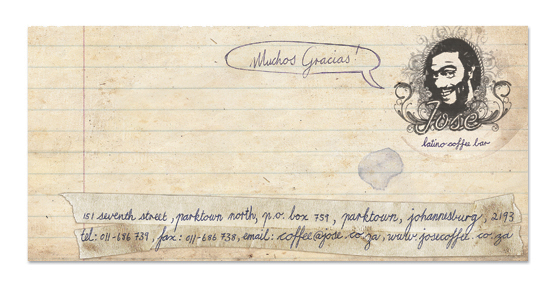 Muchos Gracias!
Jose
latino coffee bar
151 seventh street, parktown north, p.o. box 759, parktown, johannesburg, 2193
tel: 011-686 739, fax: 011-686 738, email: coffee@jose.co.za, www.josecoffee.co.za